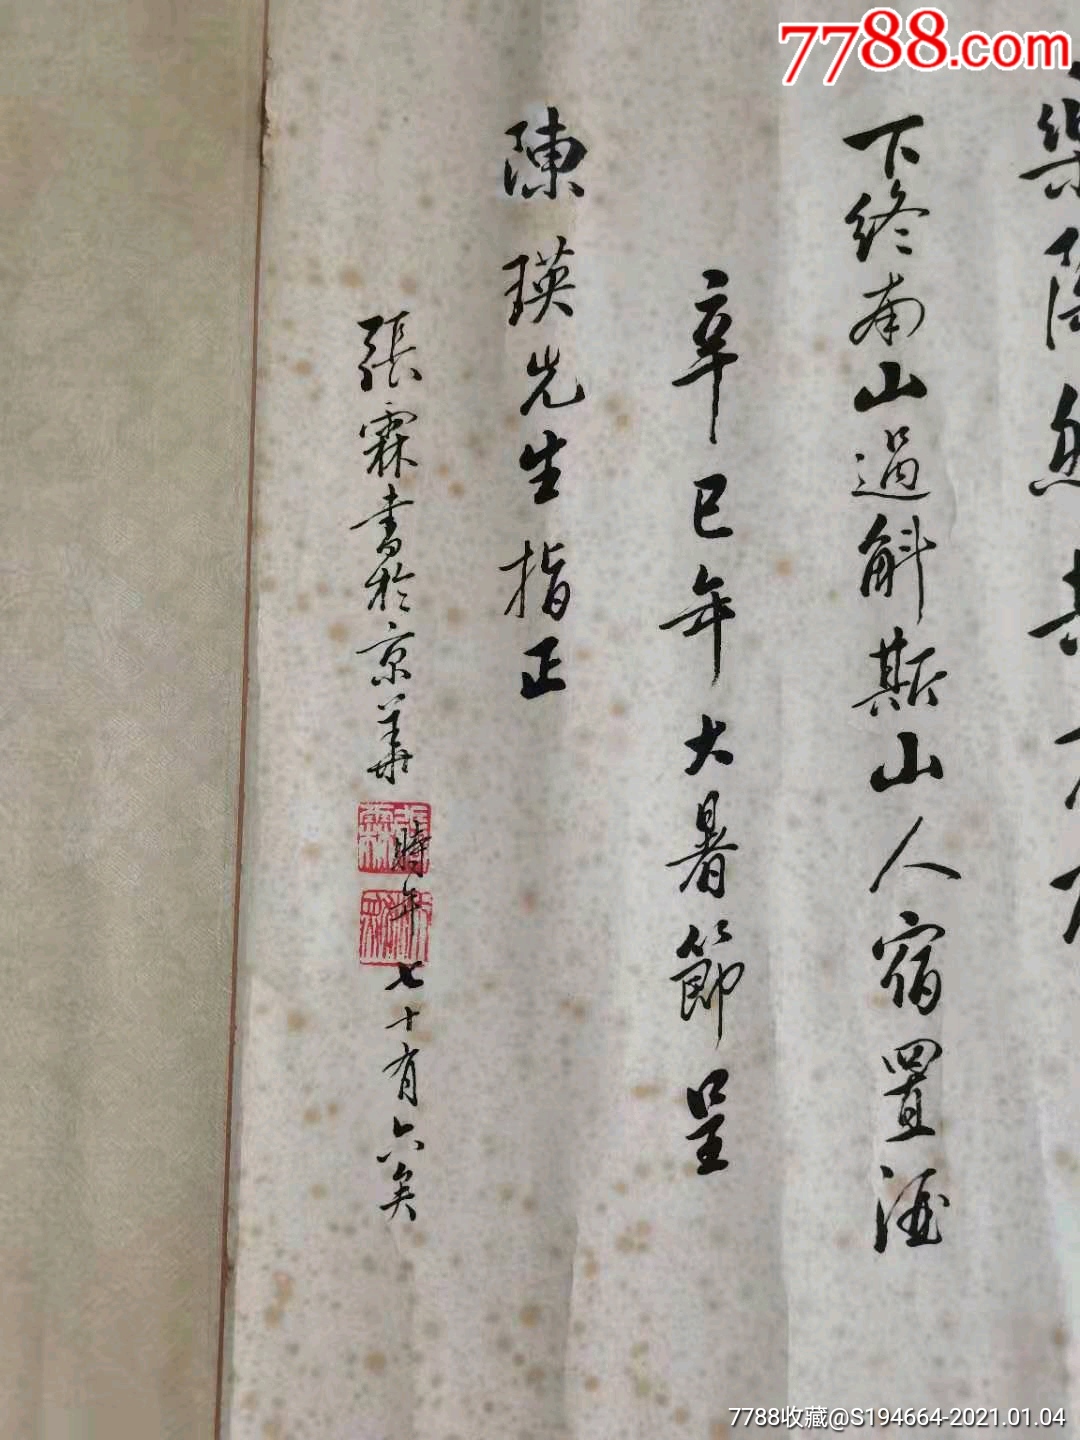 7788.com
樂陶然共忘
下終南山過斛斯山人宿置酒
辛巳年大暑節呈
陳瑛先生指正
張霖書於京華時年七十有六矣
張霖
7788收藏@S194664-2021.01.04